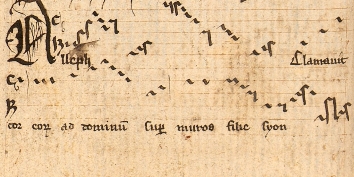 Aleph Clamavit
cor coꝝ ad dominū suꝑ muros filie syon